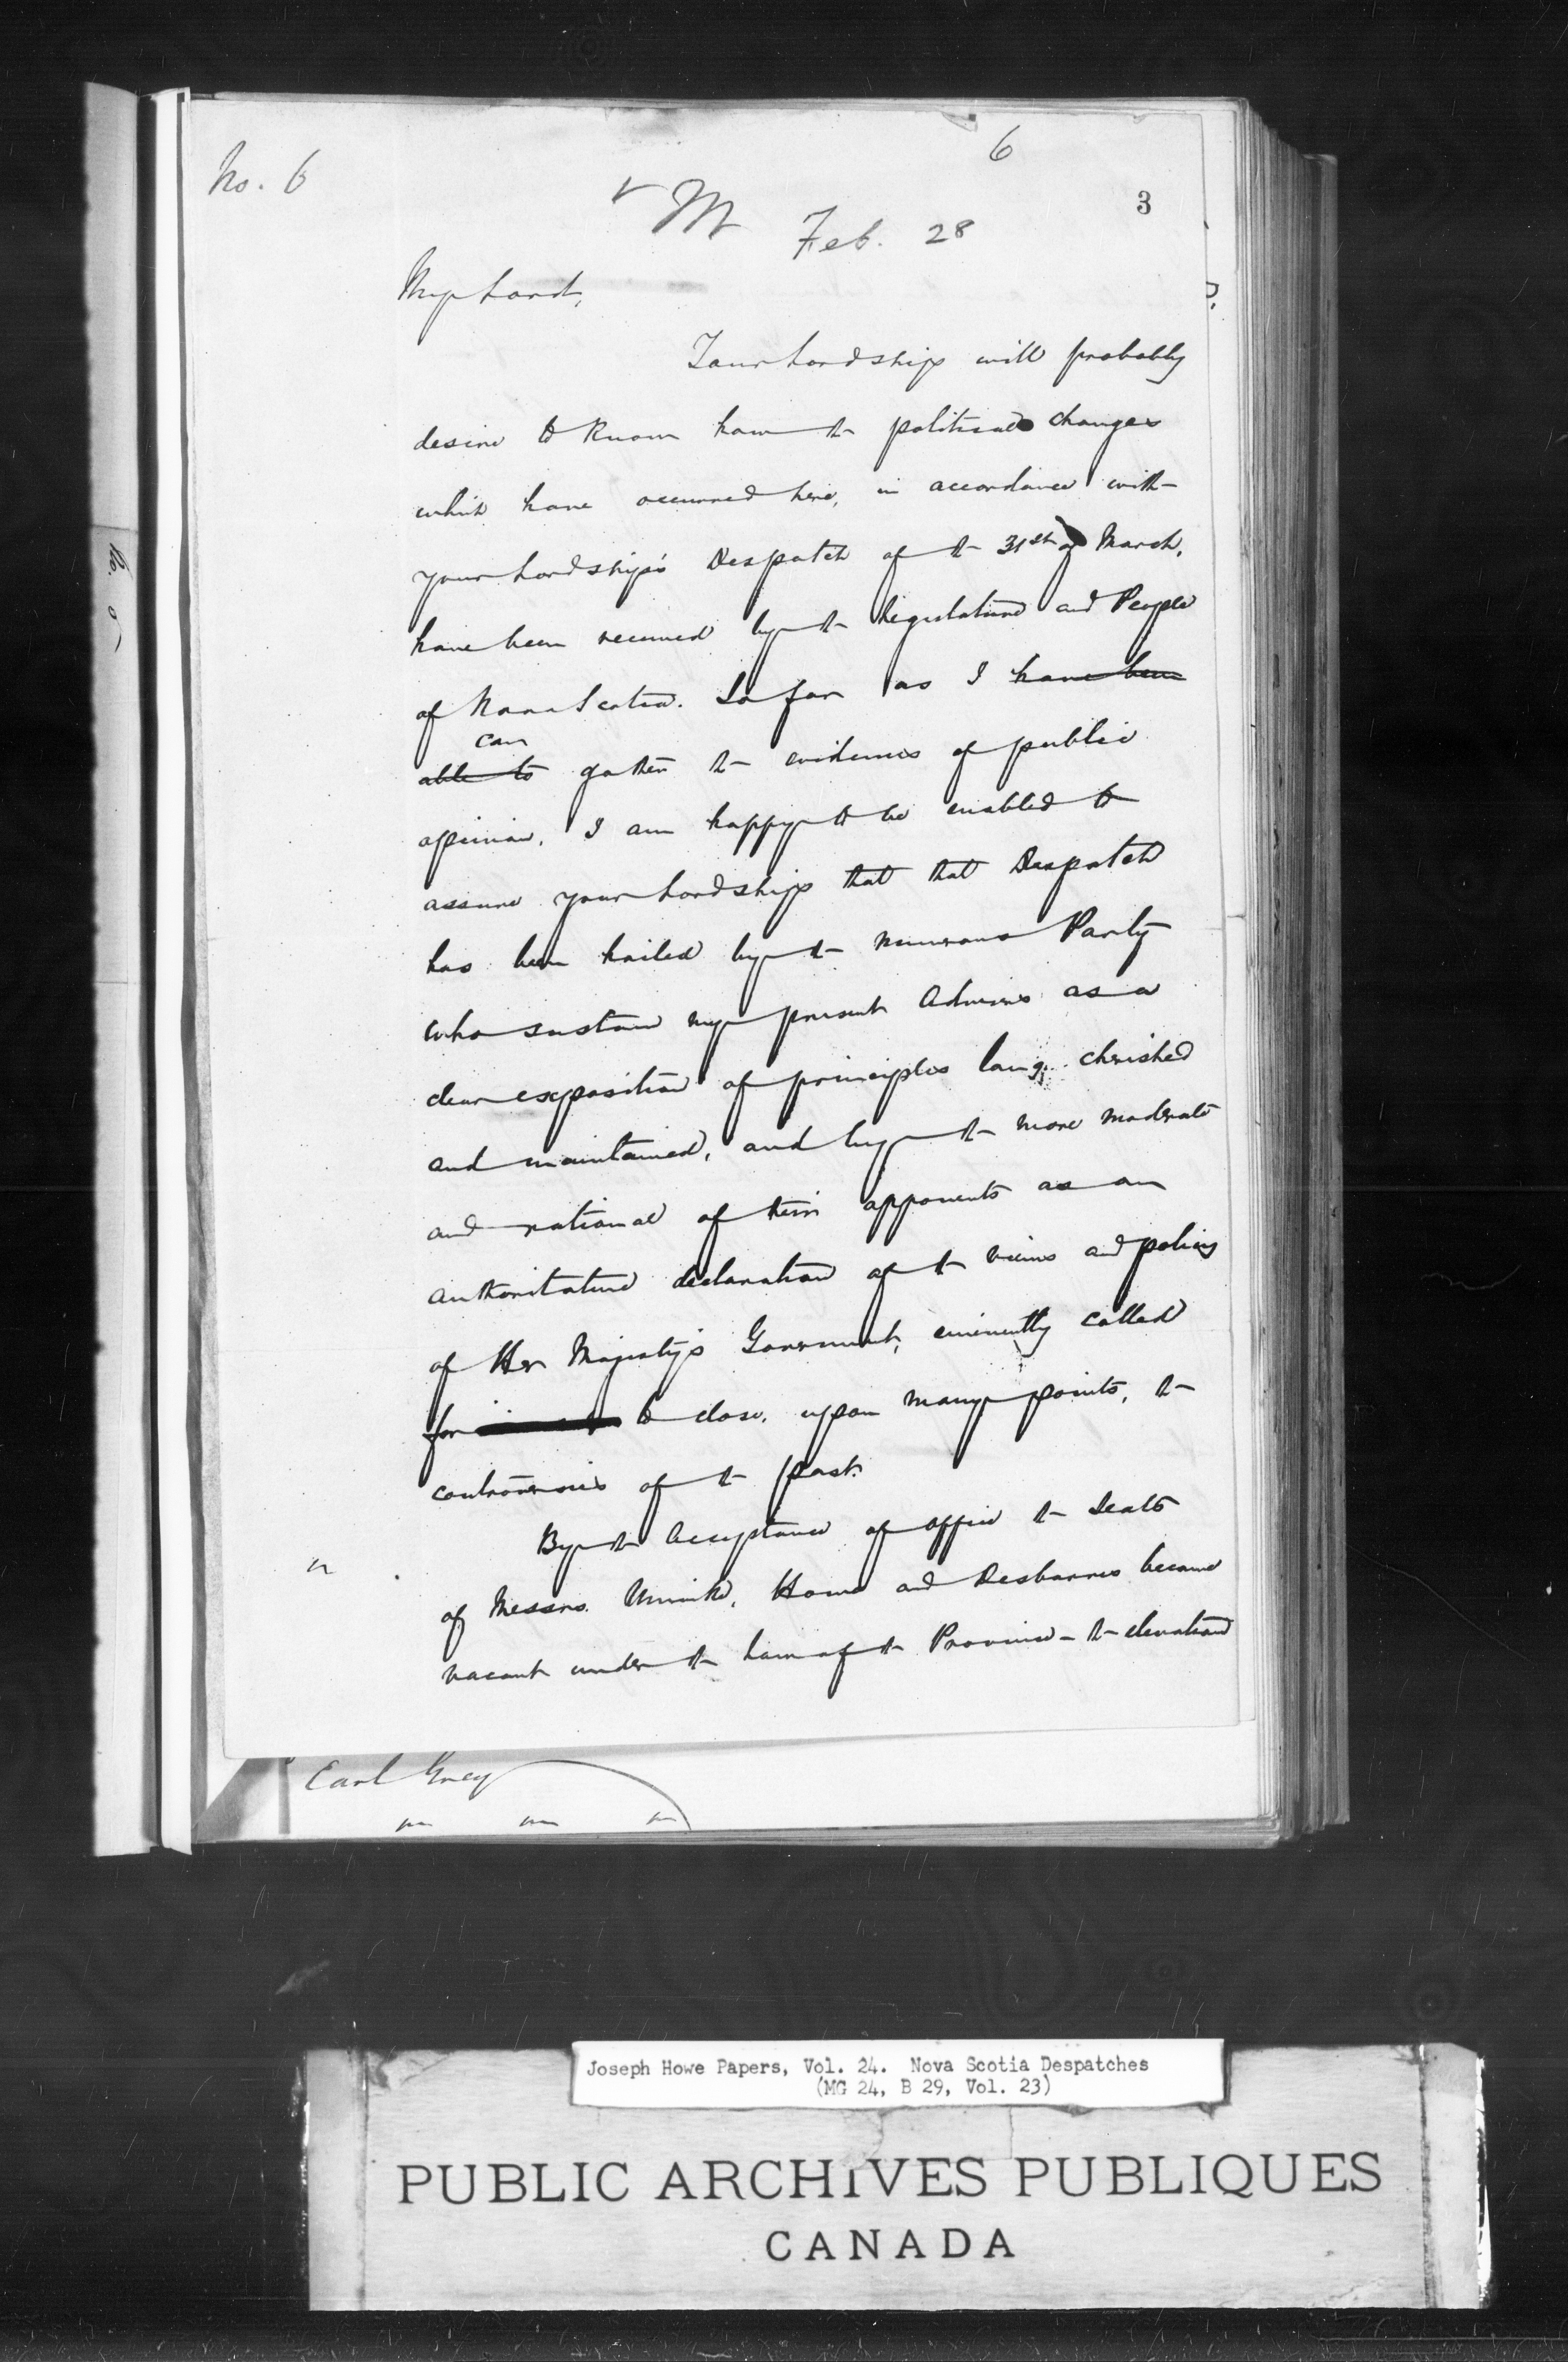 No. 6
6
3
Feb. 28
My Lord,
Your Lordship will probably
desire to know how the political changes
which have occurred here, in accordance with
your Lordship's Despatch of the 31st of March,
have been received by the Legislature and People
of Nova Scotia. So far as I have been
can
able to gather the evidences of public
opinion, I am happy to be enabled to
assure your Lordship that that Despatch
has been hailed by the numerous Party
who sustain my present Advisers as a
clear exposition of principles long cherished
and maintained, and by the more moderate
and rational of their opponents as an
authoritative declaration of the views and policy
of Her Majesty's Government, eminently called
for to close, upon many points, the
controversies of the past.
By the acceptance of office the Seats
of Messrs. Uniacke, Howe and Desbarres became
vacant under the Law of the Province - the elevation
Earl Grey
Joseph Howe Papers, Vol. 24. Nova Scotia Despatches
(MG 24, B 29, Vol. 23)
PUBLIC ARCHIVES PUBLIQUES
CANADA